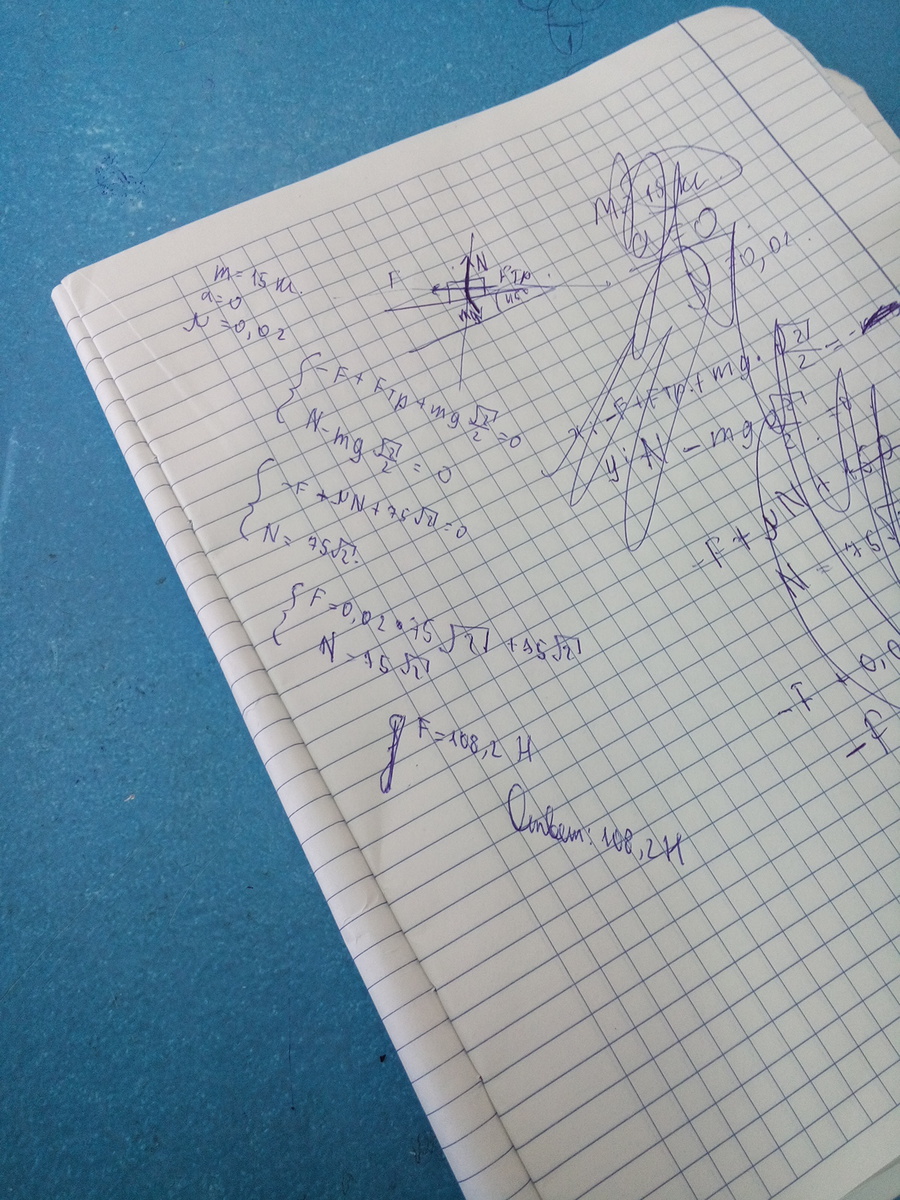 m = 15 кг.
a = 0
μ = 0,02
F
N
Fтр
45°
mg
{ -F + Fтр + mg √2/2 = 0
N - mg √2/2 = 0
{ -F + μN + 75√2 = 0
N = 75√2.
{ F = 0,02 • 75√2 + 75√2
N = 75√2
F = 108,2 Н
Ответ: 108,2 Н
m = 15 кг.
a = 0
0,02.
x: -F + Fтр + mg · √2/2 =
y: N - mg √2/2 =
-F + μN +
N = 75√
-F + 0,0
-F